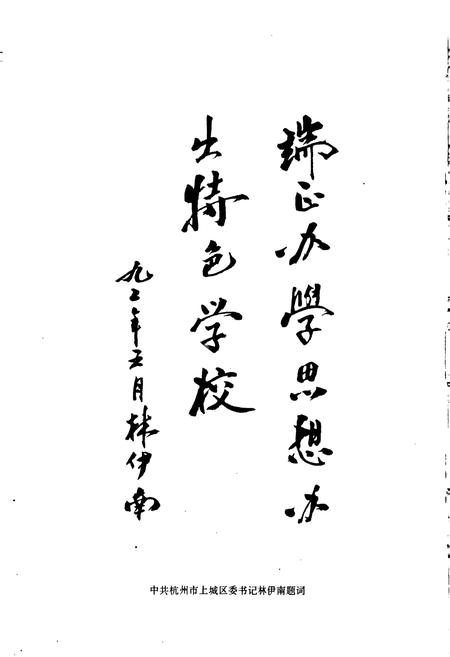 端正办學思想办
出特色学校
九二年五月林伊南
中共杭州市上城区委书记林伊南题词